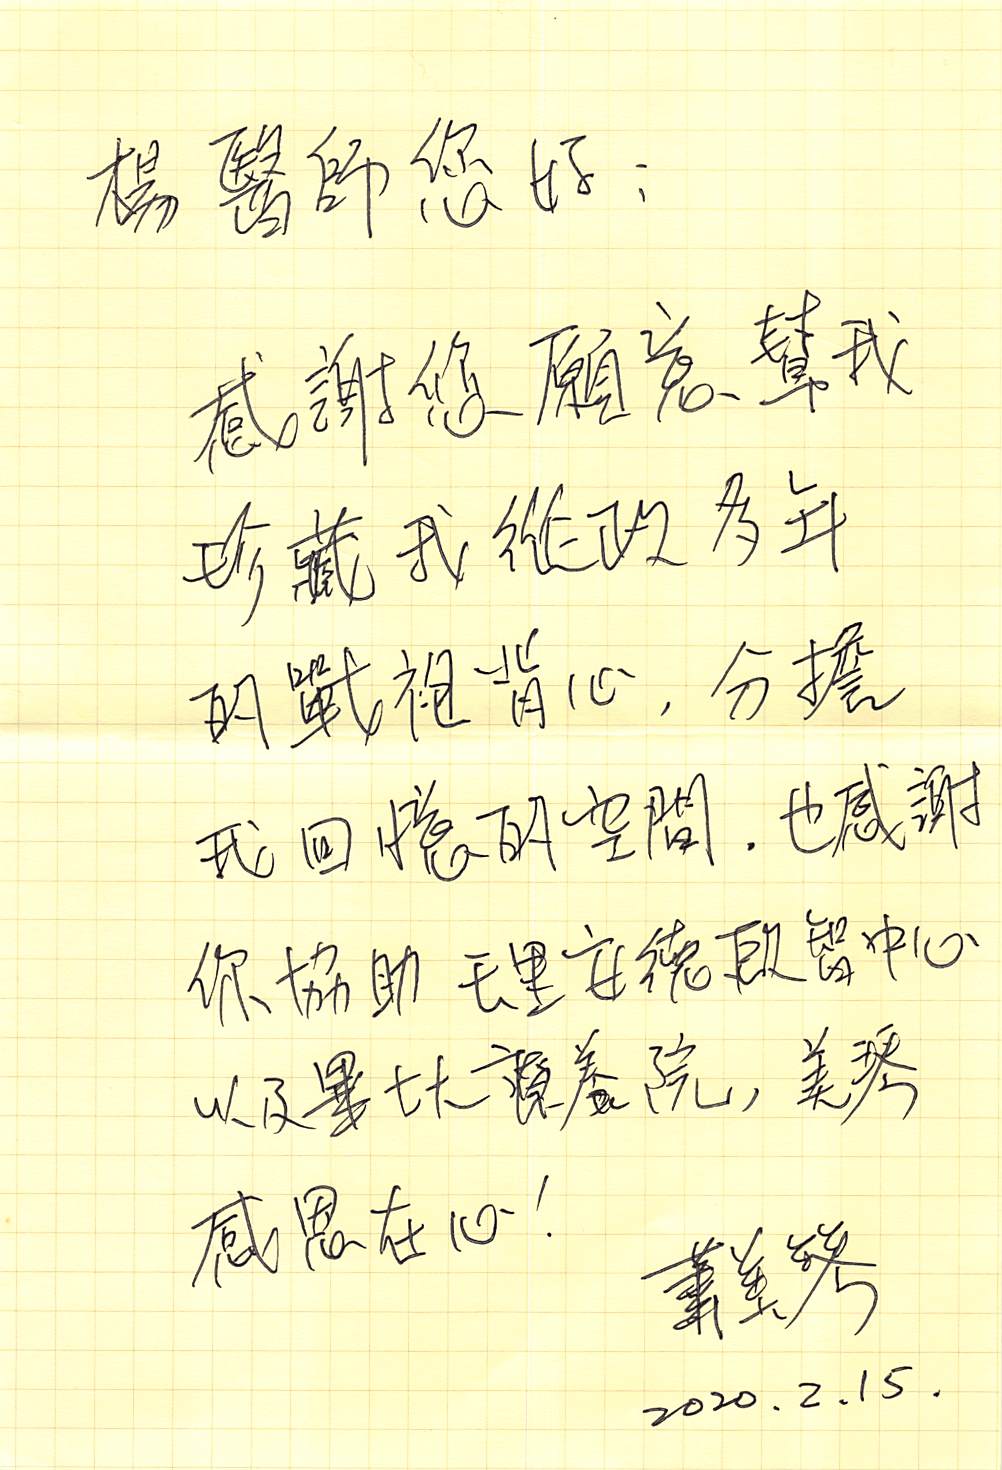 楊醫師您好：
感謝您願意幫我
珍藏我從政多年
的戰袍背心，分擔
我回憶的空間．也感謝
你協助玉里安德啟智中心
以及畢士大療養院，美琴
感恩在心！
蕭美琴
2020.2.15.